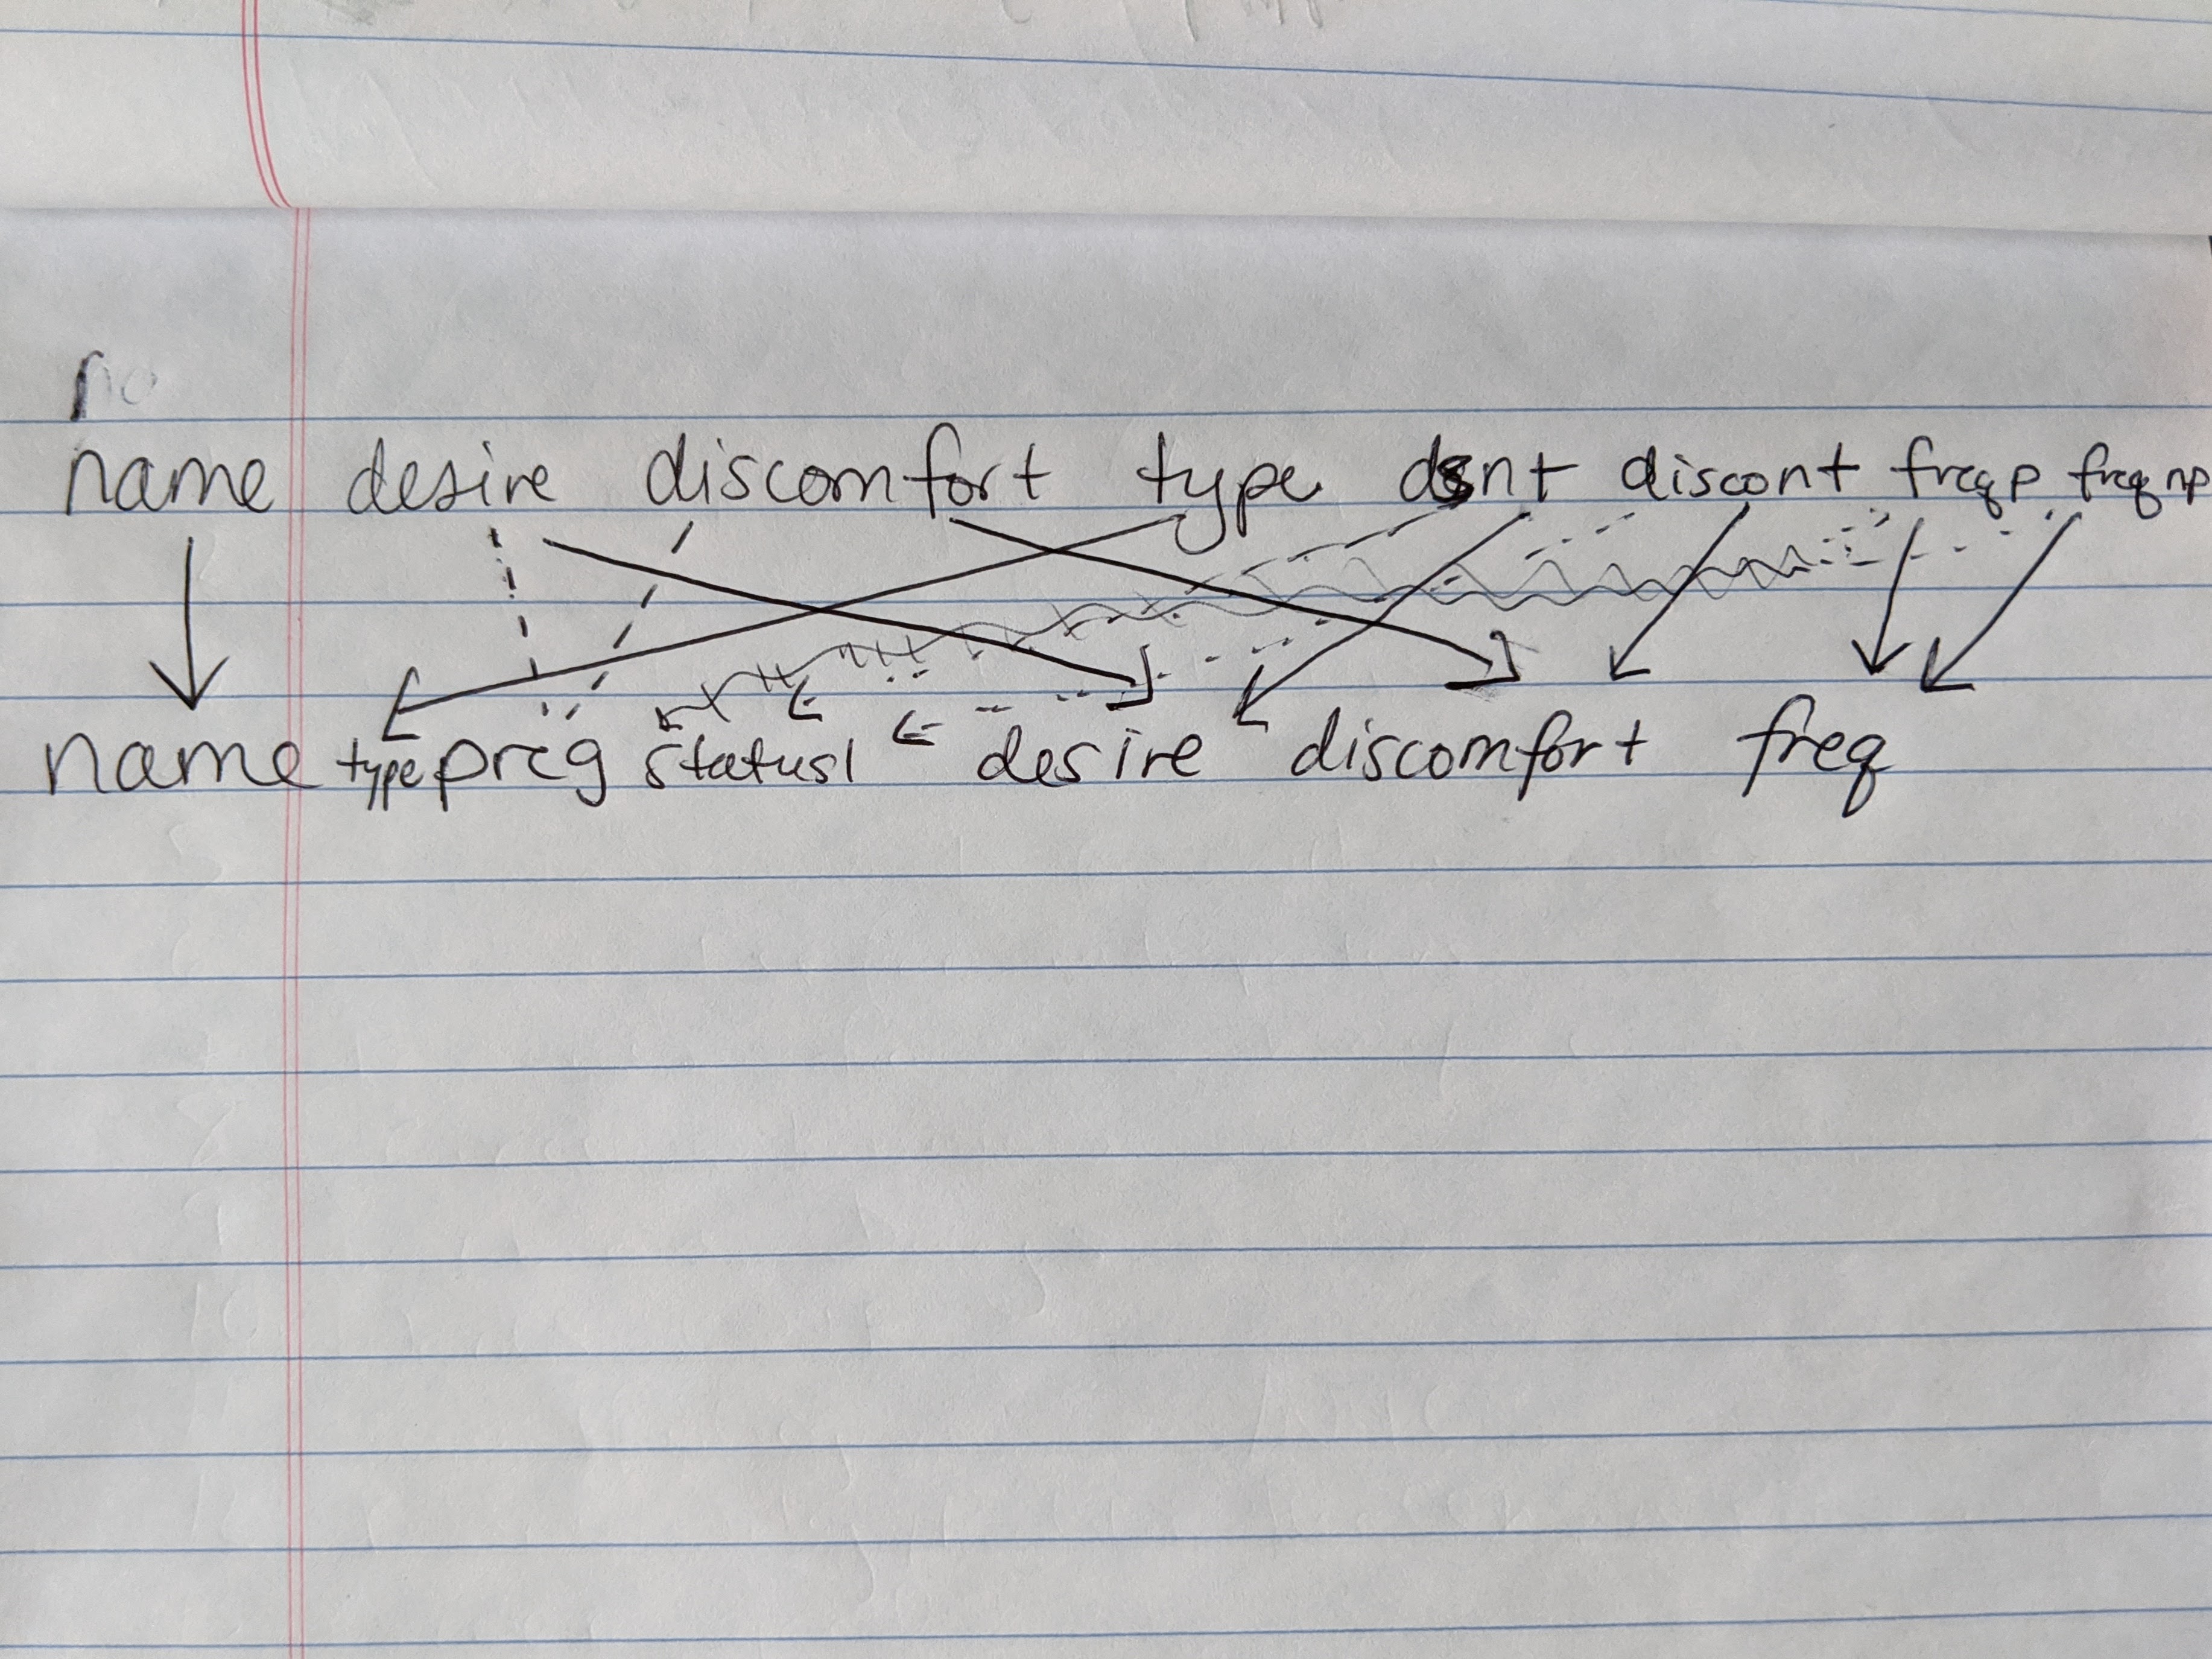 name desire discomfort type dsnt discont freqp freqnp
name type preg status1 desire discomfort freq